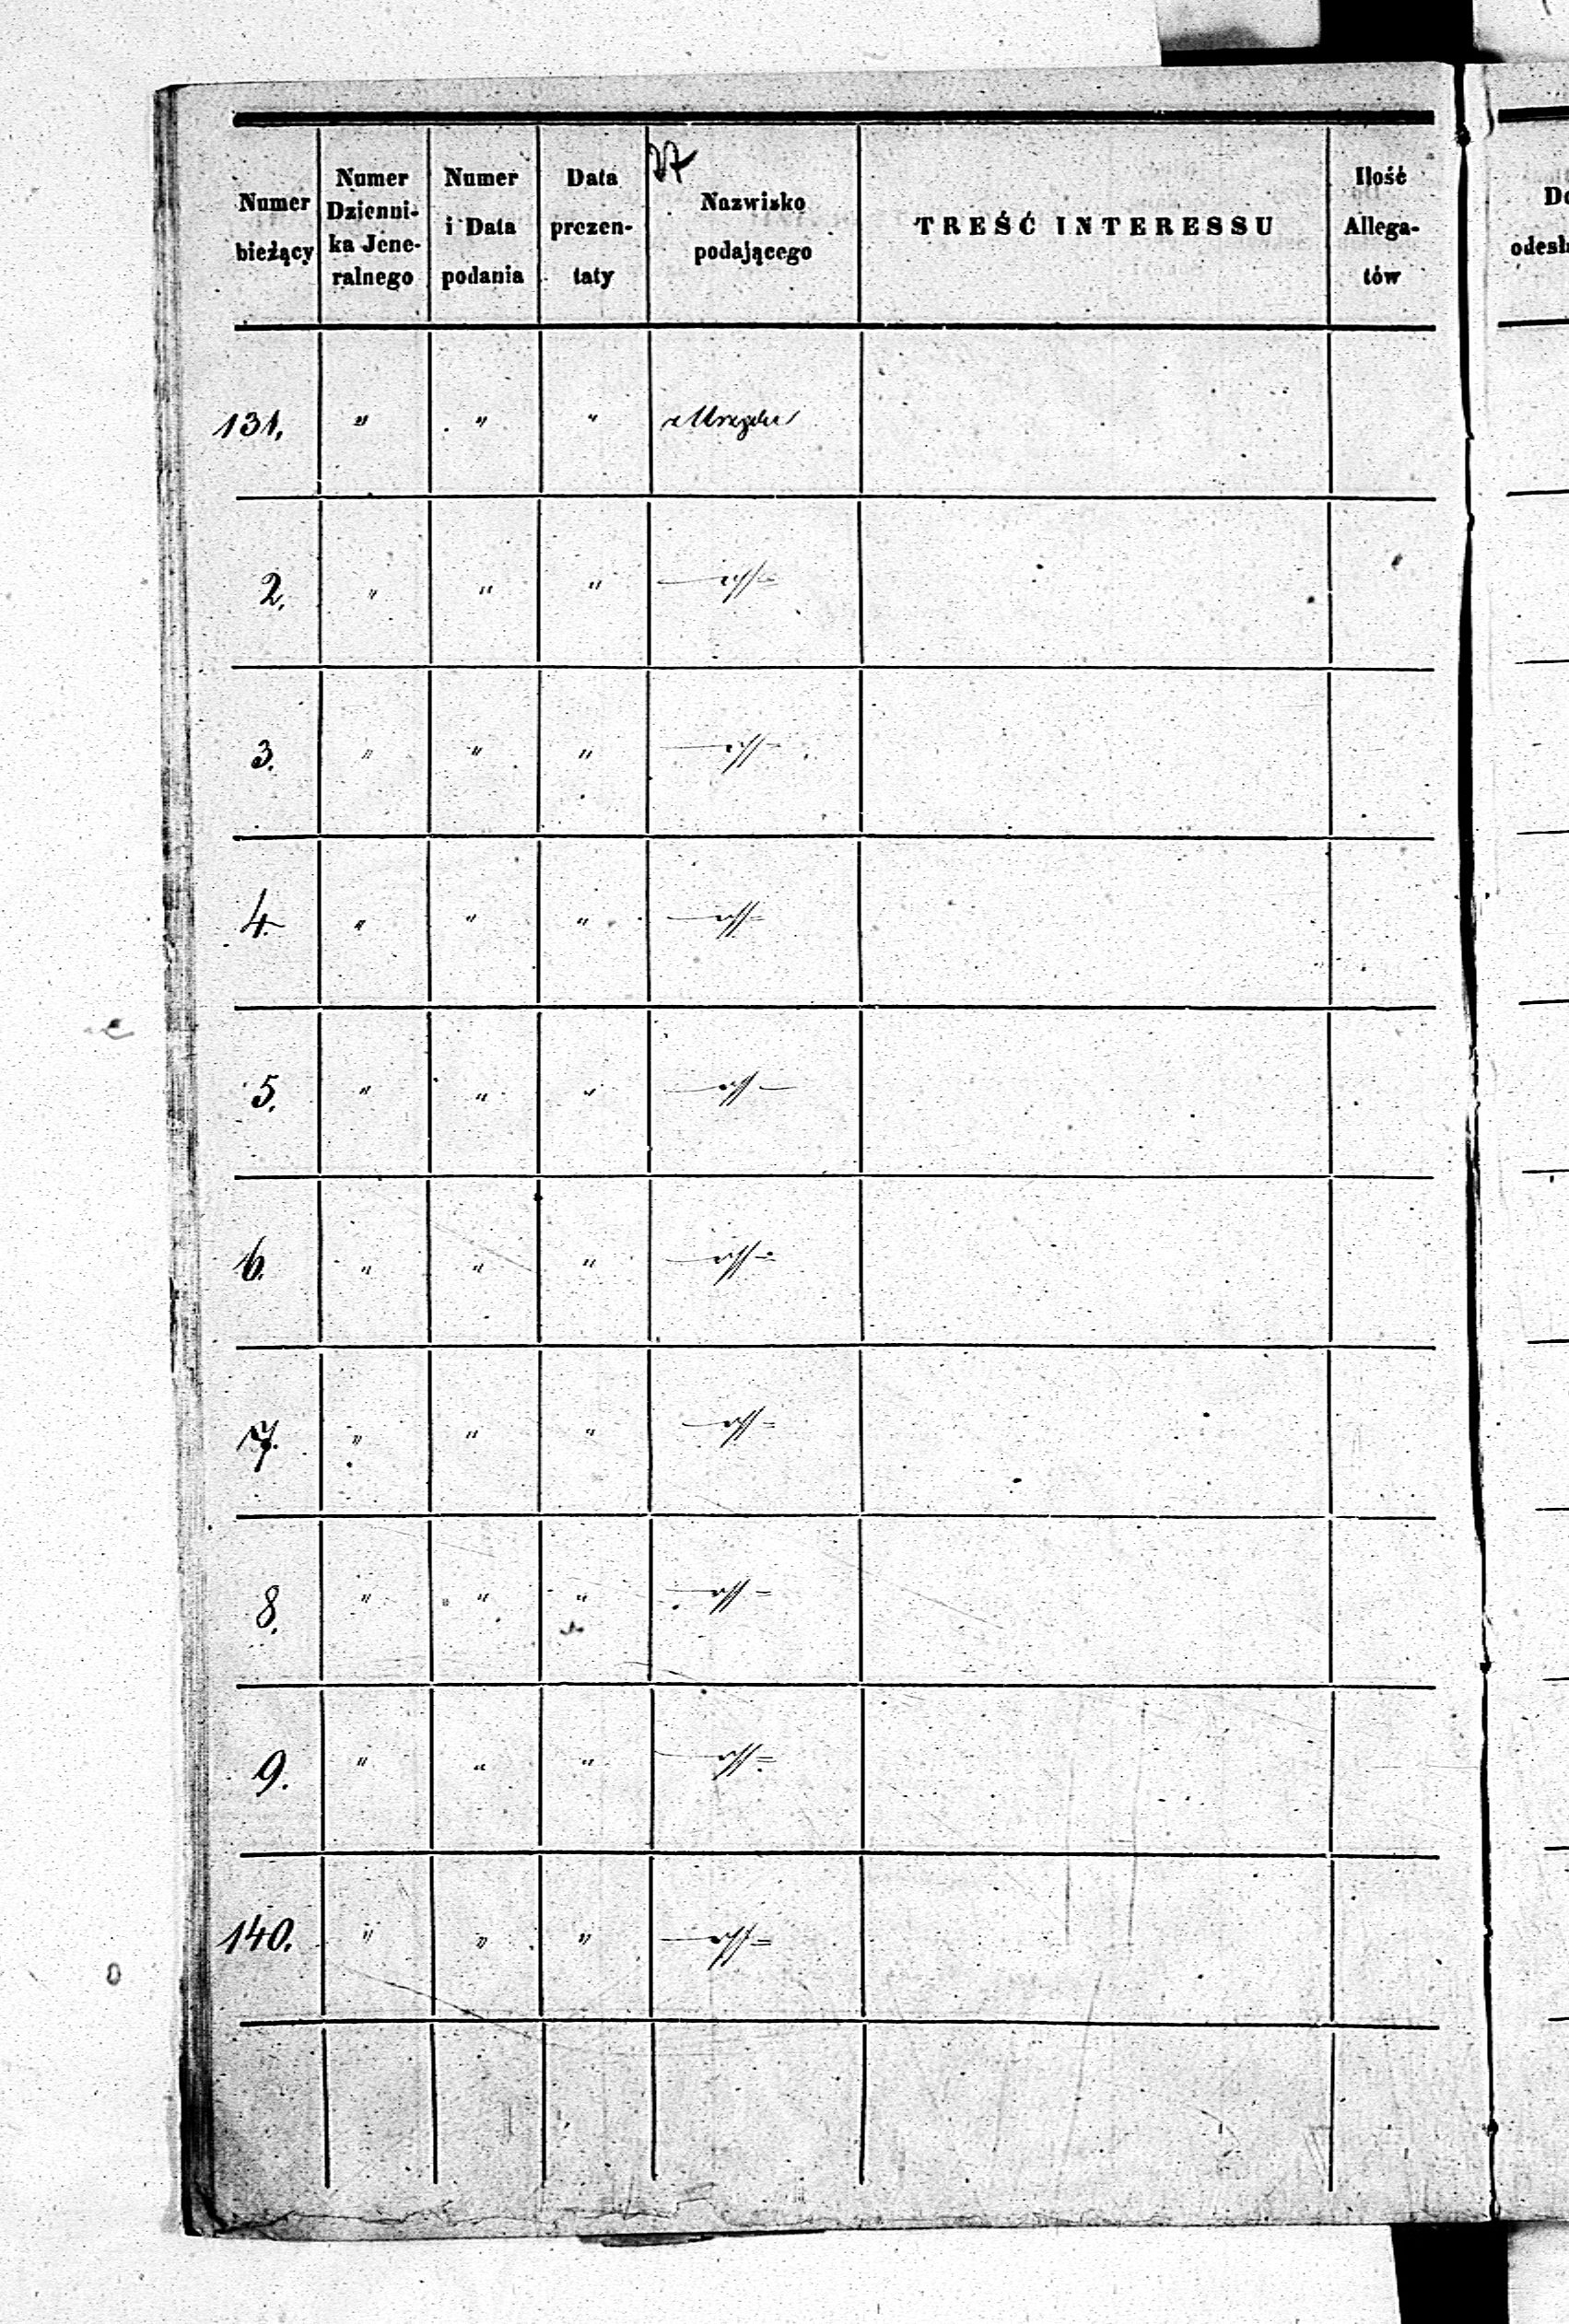 Numer bieżący | Numer Dzienni-ka Jene-ralnego | Numer i Data podania | Data prezen-taty | Nazwisko podającego | TREŚĆ INTERESSU | Ilość Allega-tów
131. | " | " | " | z Urzędu
2. | " | " | "
3. | " | " | "
4. | " | " | "
5. | " | " | "
6. | " | " | "
7. | " | " | "
8. | " | " | "
9. | " | " | "
140. | " | " | "